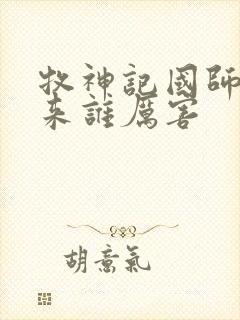 牧神記國師
來誰厲害
胡意氣